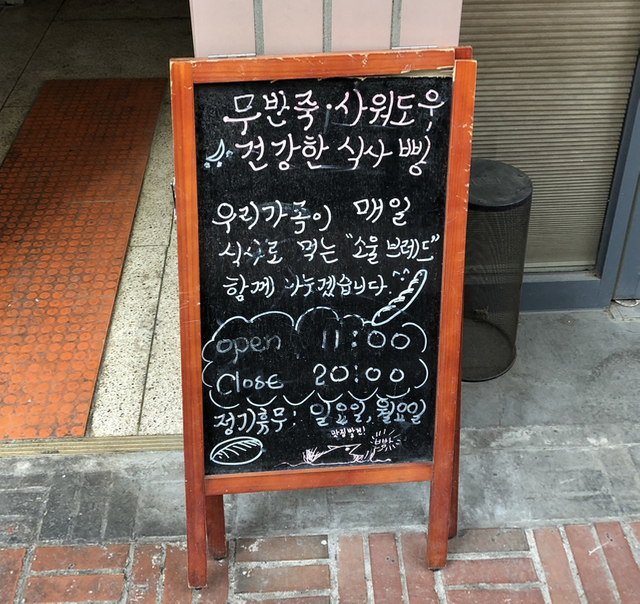 무반죽·사워도우
건강한 식사빵
우리가족이 매일
식사로 먹는 "소울브레드"
함께 나누겠습니다.^^
open 11:00
Close 20:00
정기휴무: 일요일, 월요일